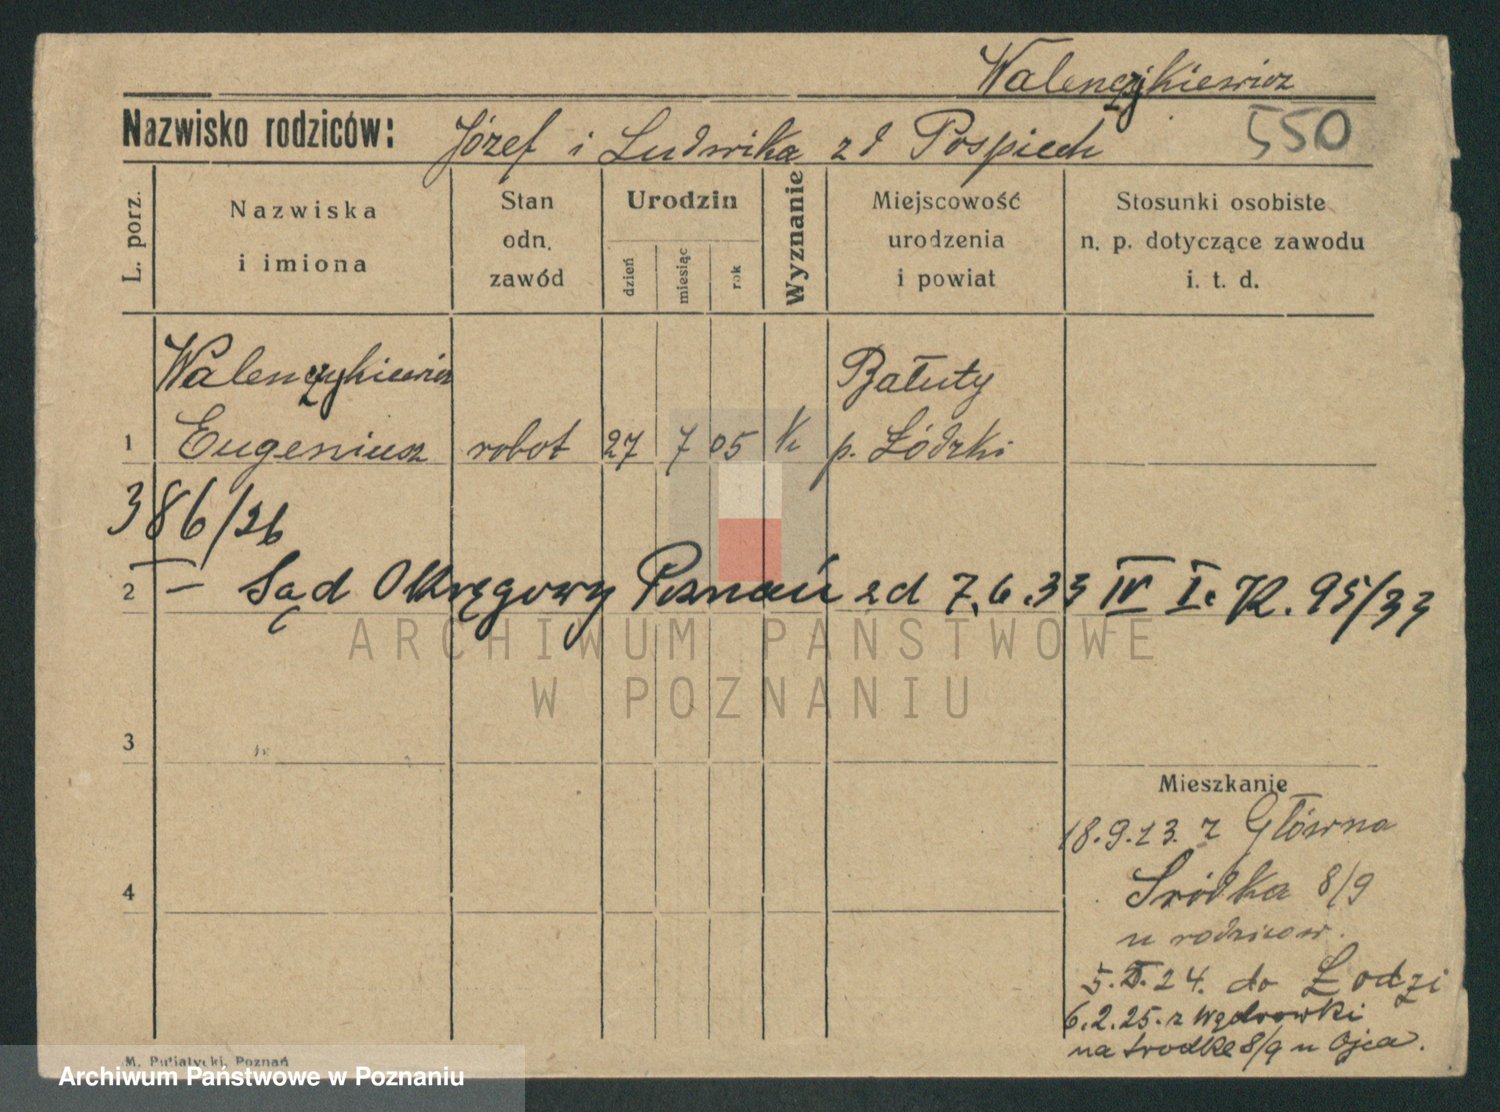 Walenczykiewicz
Nazwisko rodziców: Józef i Ludwika z d Pospiech 550
L. porz.
Nazwiska
i imiona
Stan
odn.
zawód
Urodzin
dzień
miesiąc
rok
Wyznanie
Miejscowość
urodzenia
i powiat
Stosunki osobiste
n. p. dotyczące zawodu
i. t. d.
Walenczykiewicz Bałuty
1 Eugeniusz robot 27 7 05 k p. Łódzki
386/26
2 — Sąd Okręgowy Poznań zd 7.6.33 IV I. K. 95/33
ARCHIWUM PAŃSTWOWE
W POZNANIU
3
Mieszkanie
18.9.23. z Główna
4 Śródka 8/9
u rodziców.
5.5.24. do Łodzi
6.2.25. z Wędrówki
na Środkę 8/9 u Ojca.
M. Putiatycki, Poznań
Archiwum Państwowe w Poznaniu